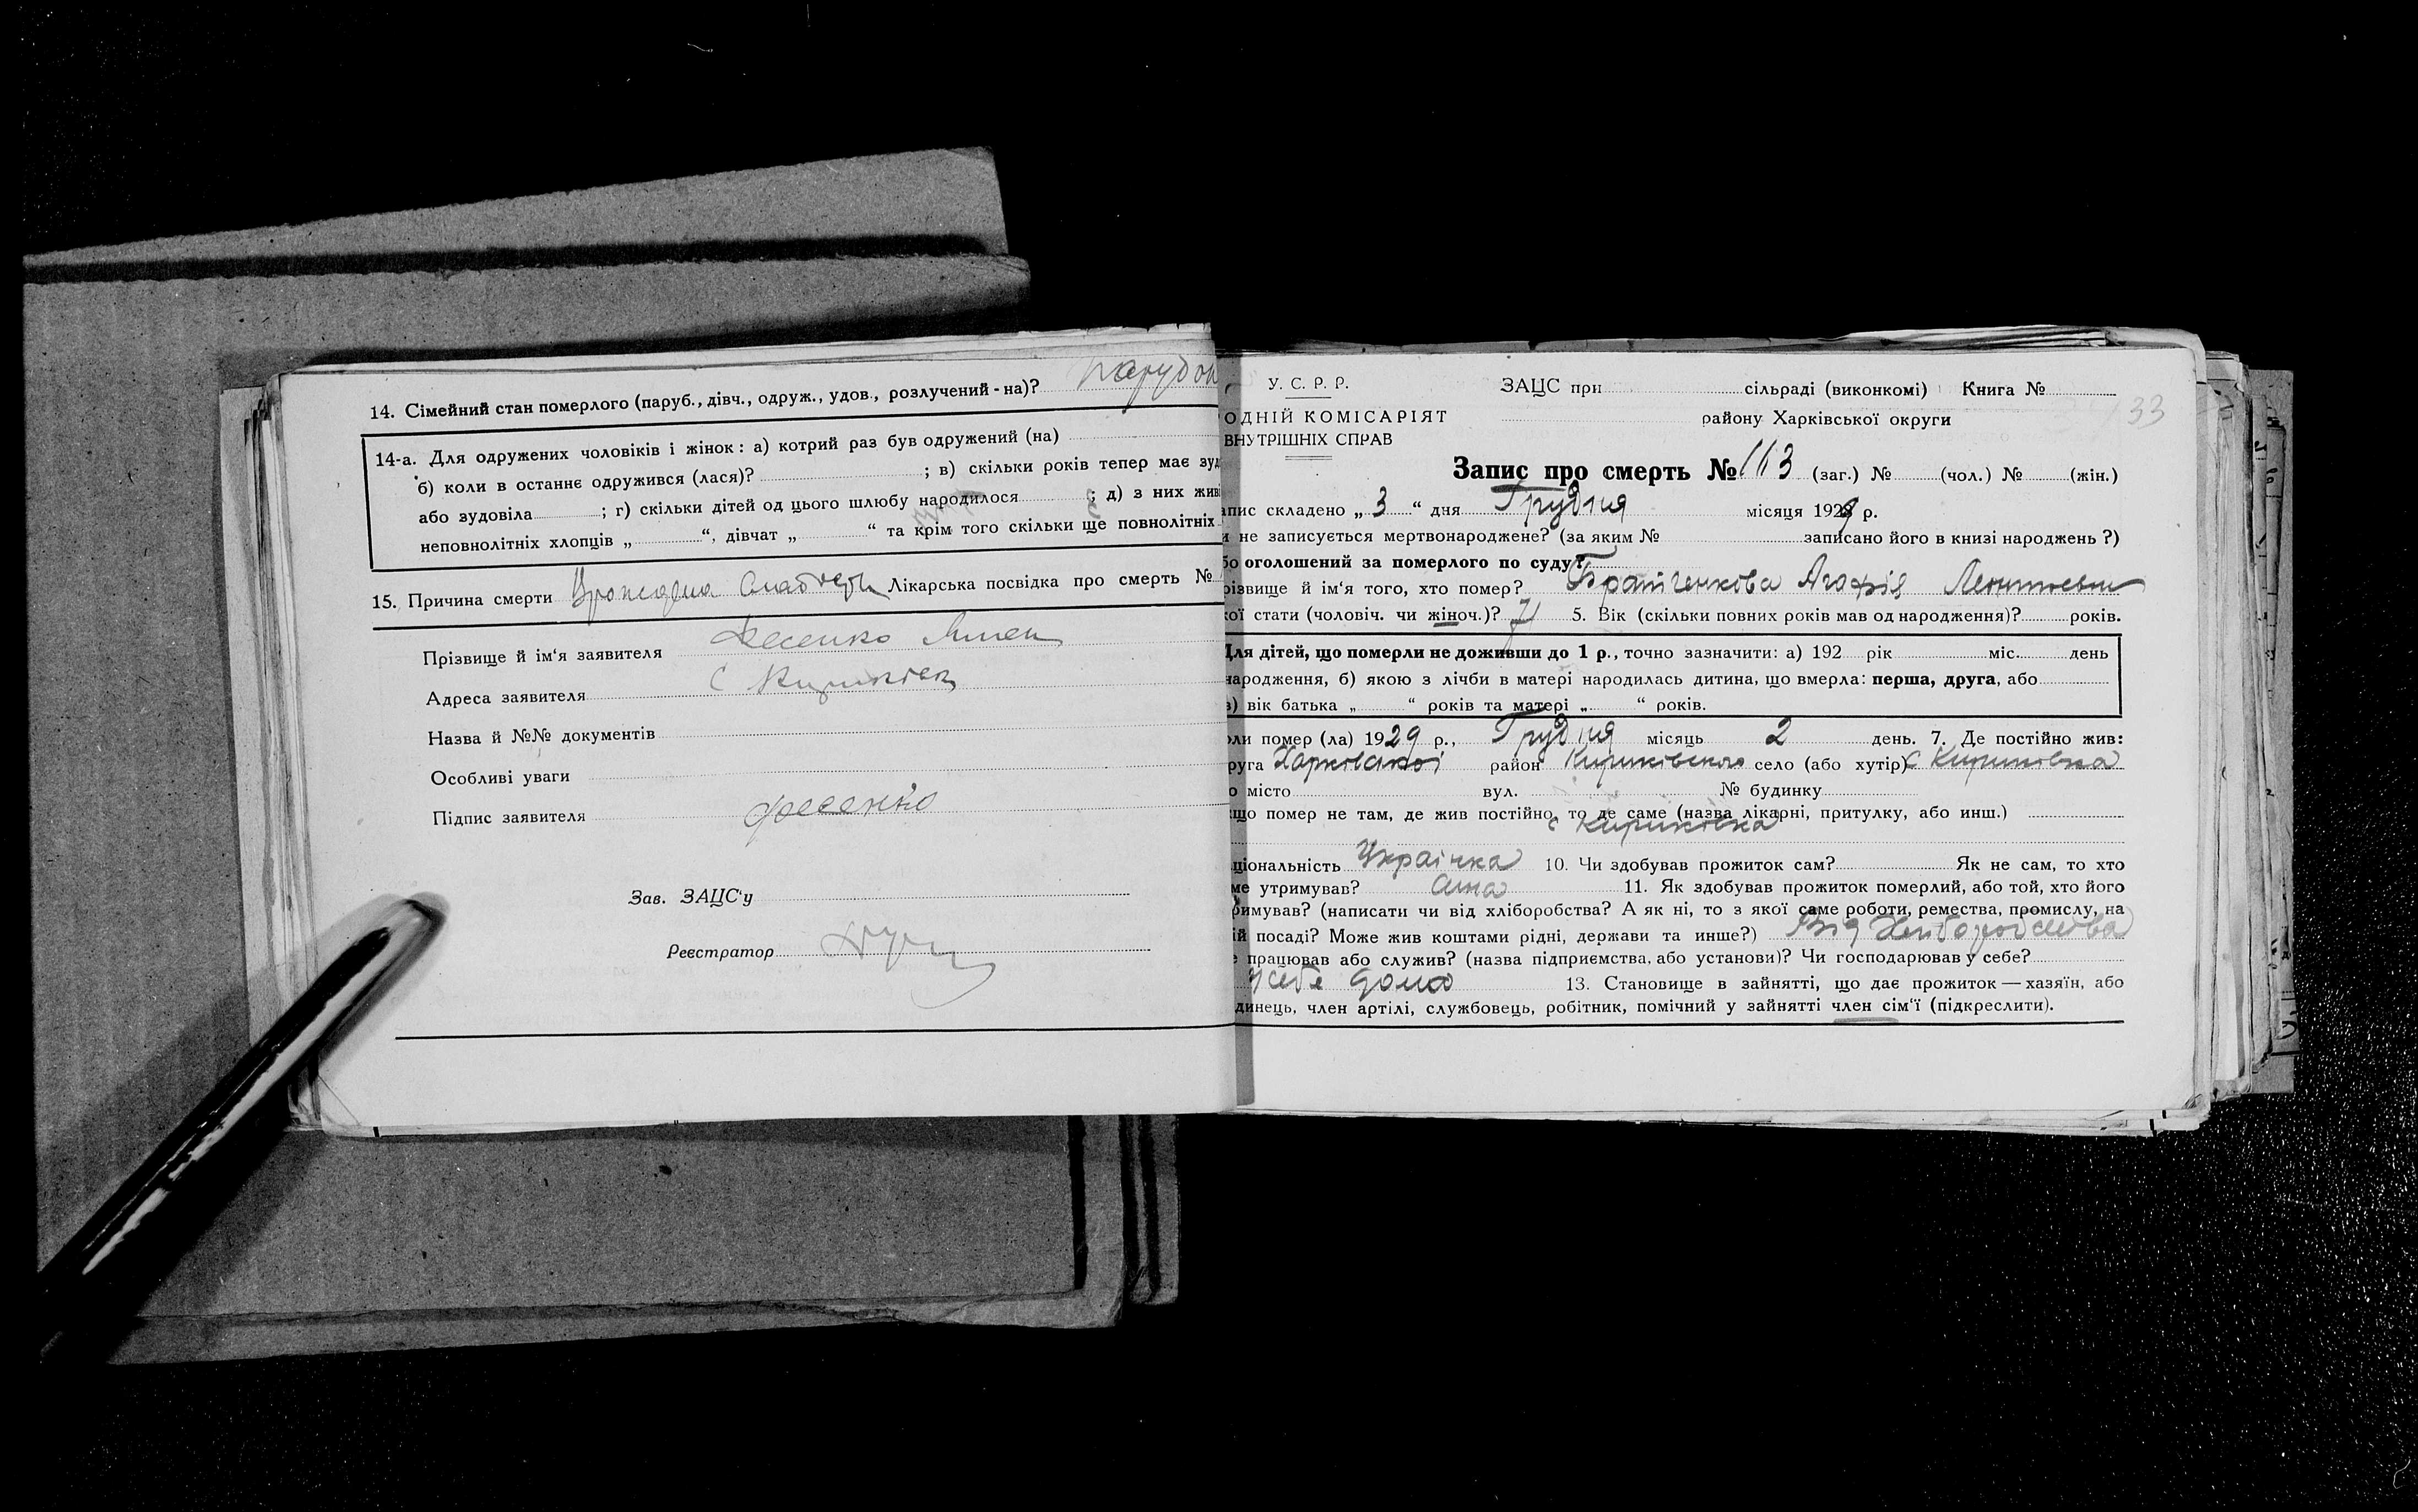 14. Сімейний стан померлого (паруб., дівч., одруж., удов., розлучений-на)? парубок
14-а. Для одружених чоловіків і жінок: а) котрий раз був одружений (на)
б) коли в останнє одружився (лася)? ; в) скільки років тепер має
або зудовіла ; г) скільки дітей од цього шлюбу народилося ; д) з них
неповнолітніх хлопців „ “, дівчат „ “ та крім того скільки ще повнолітніх
15. Причина смерти Врождена Лікарська посвідка про смерть №
Прізвище й ім‘я заявителя Фесенко
Адреса заявителя с
Назва й №№ документів
Особливі уваги
Підпис заявителя Фесенко
Зав. ЗАЦС‘у
Реєстратор
У. С. Р. Р. ЗАЦС при сільраді (виконкомі) Книга №
33
ОДНІЙ КОМІСАРІЯТ району Харківської округи
ВНУТРІШНІХ СПРАВ
Запис про смерть № 113 (заг.) № (чол.) № (жін.)
апис складено „ 3 “ дня Грудня місяця 1929 р.
и не записується мертвонароджене? (за яким № записано його в книзі народжень?)
бо оголошений за померлого по суду?
різвище й ім‘я того, хто помер? Братченкова Агафія
кої стати (чоловіч. чи жіноч.)? 71 5. Вік (скільки повних років мав од народження)? років.
Для дітей, що померли не доживши до 1 р., точно зазначити: а) 192 рік міс. день
народження, б) якою з лічби в матері народилась дитина, що вмерла: перша, друга, або
в) вік батька „ “ років та матері „ “ років.
оли помер (ла) 1929 р., Грудня місяць 2 день. 7. Де постійно жив:
руга Харківської район Кириківського село (або хутір) с Кириківка
о місто вул. № будинку
що помер не там, де жив постійно, то де саме (назва лікарні, притулку, або инш.)
с Кириківка
ціональність Українка 10. Чи здобував прожиток сам? Як не сам, то хто
ме утримував? 11. Як здобував прожиток померлий, або той, хто його
римував? (написати чи від хліборобства? А як ні, то з якої саме роботи, ремества, промислу, на
ій посаді? Може жив коштами рідні, держави та инше?) Від Хліборобства
е працював або служив? (назва підприємства, або установи)? Чи господарював у себе?
У себе дома 13. Становище в зайнятті, що дає прожиток — хазяїн, або
динець, член артілі, службовець, робітник, помічний у зайнятті член сім‘ї (підкреслити).